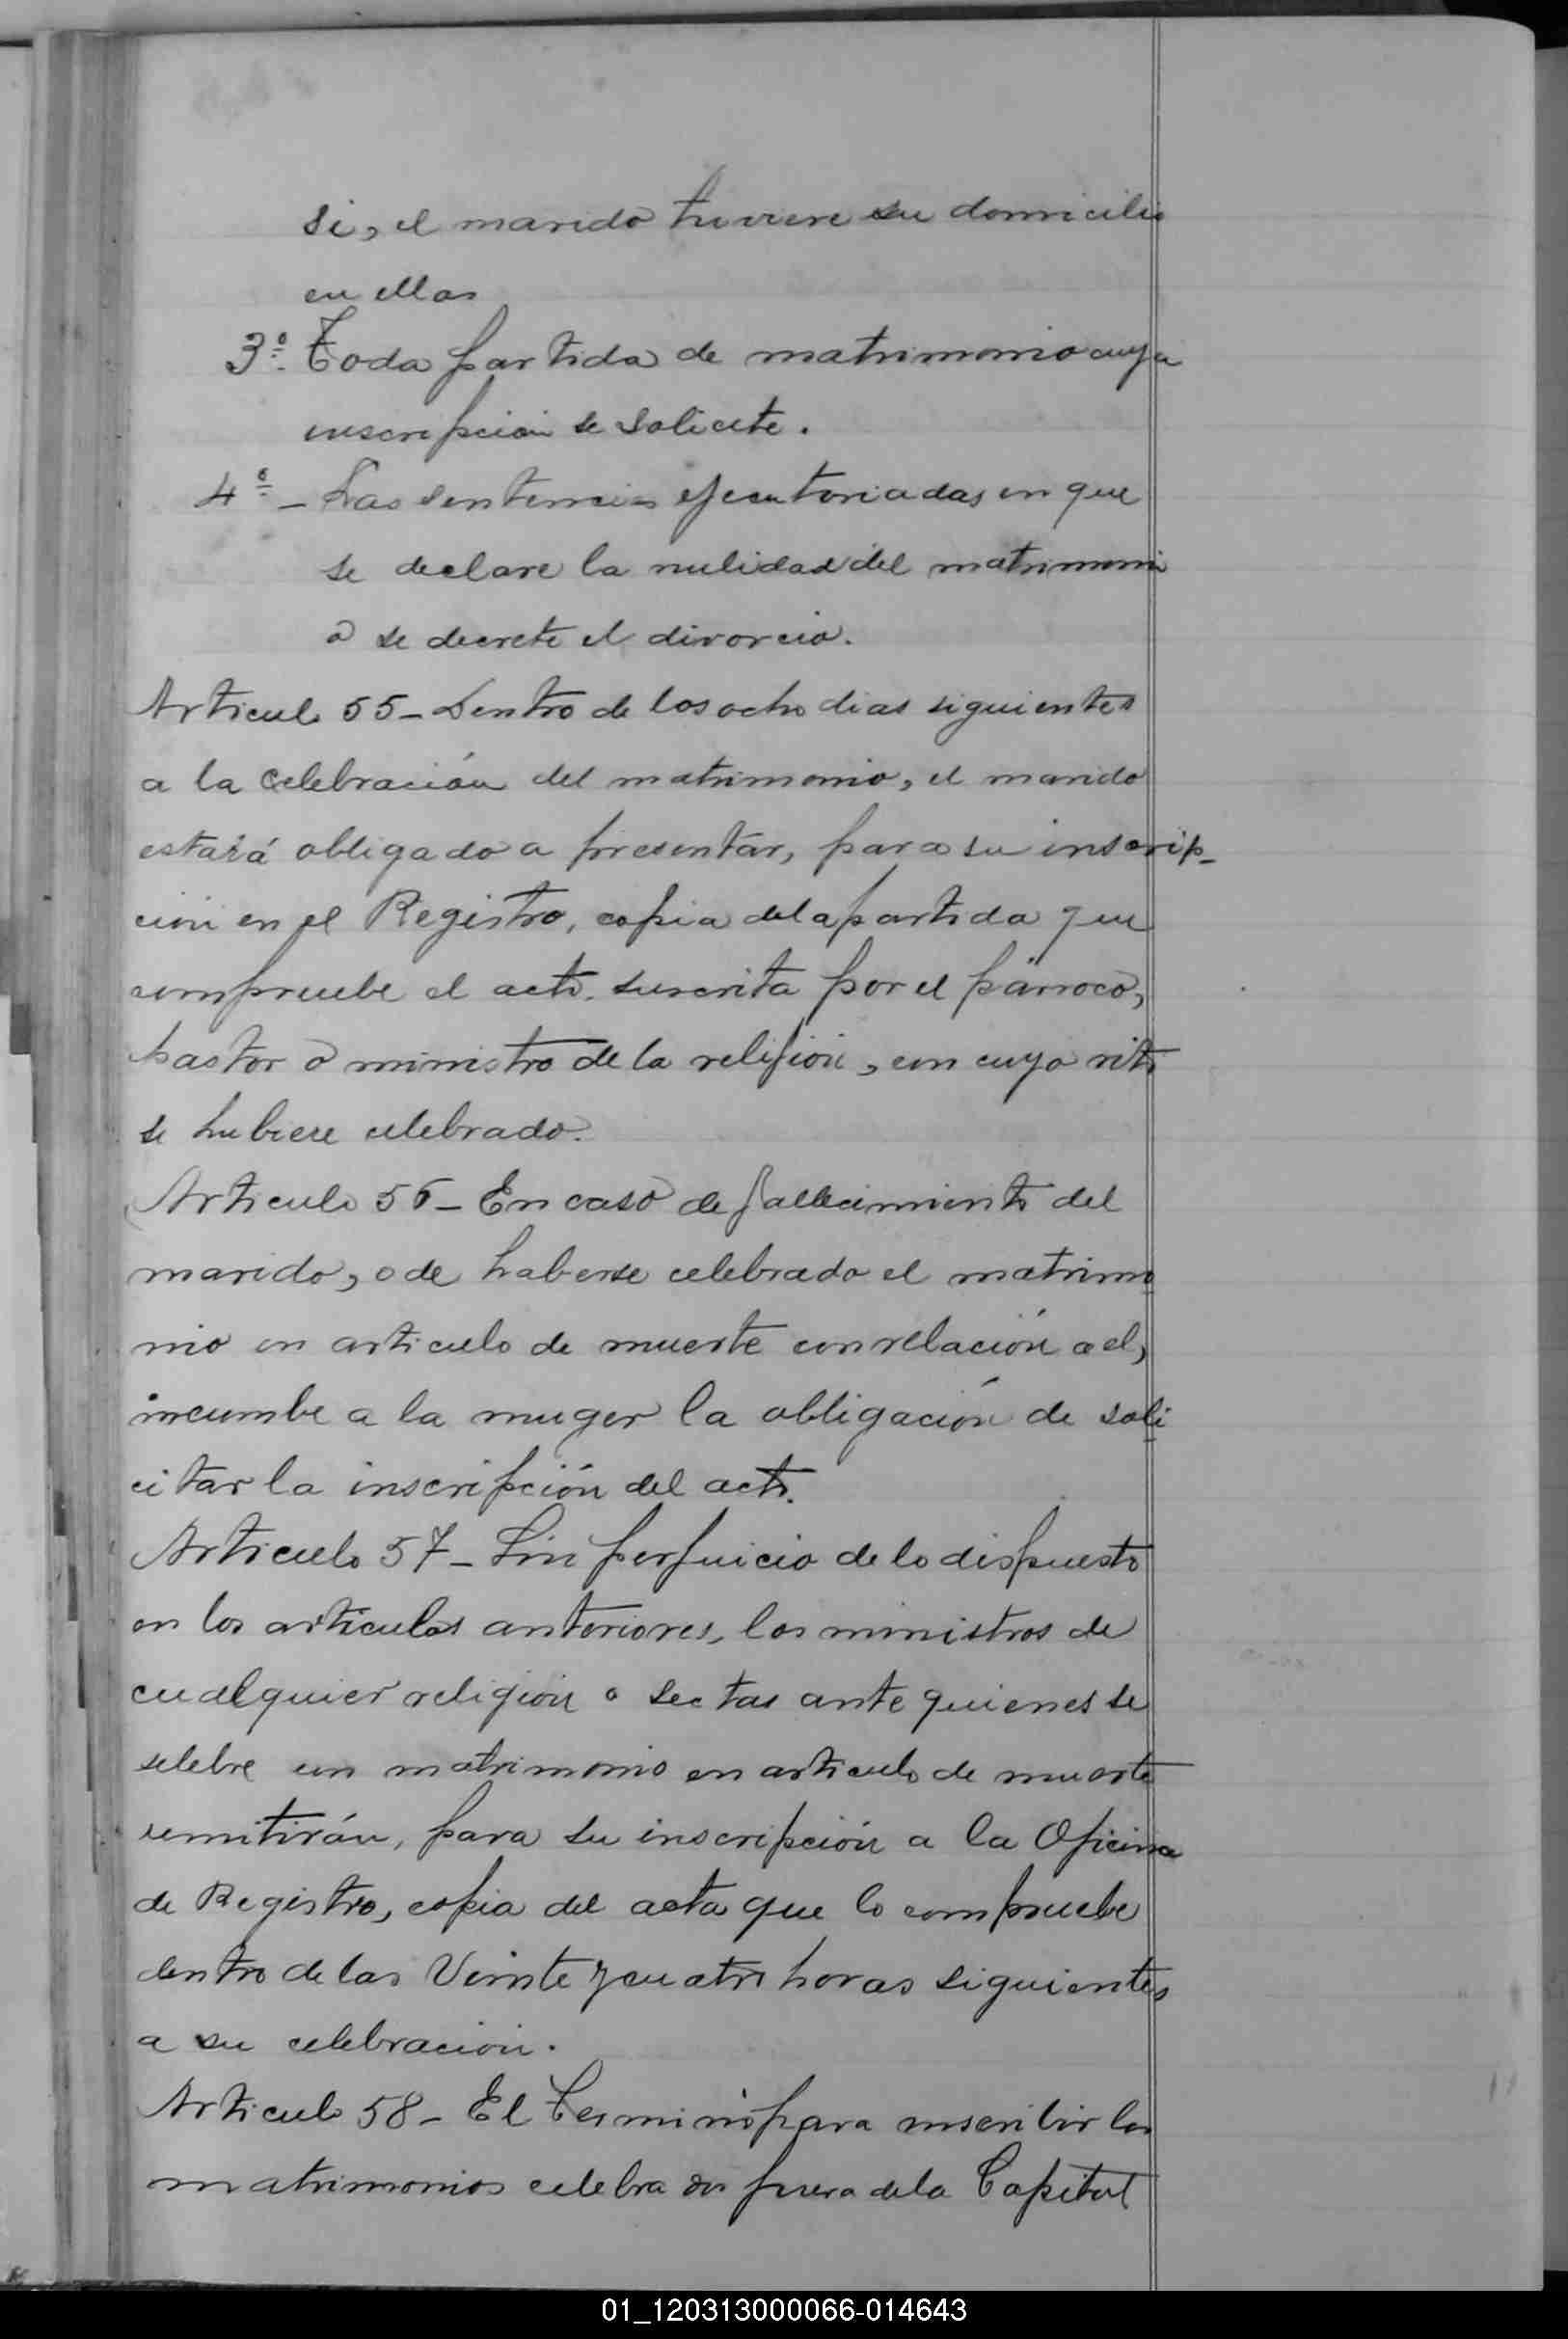 si, el marido tuviere su domicilio
en ellas
3º. Toda partida de matrimonio cuya
inscripcion se solicite.
4º - Las sentencias ejecutoriadas en que
se declare la nulidad del matrimonio
o se decrete el divorcio.
Articulo 55- Dentro de los ocho dias siguientes
a la celebración del matrimonio, el marido
estará obligado a presentar, para su inscrip-
cion en el Registro, copia de la partida que
compruebe el acto, suscrita por el párroco,
pastor o ministro de la religion, con cuyo rito
se hubiere celebrado.
Articulo 56- En caso de fallecimiento del
marido, o de haberse celebrado el matrimo
nio en articulo de muerte con relación a el,
incumbe a la muger la obligación de soli
citar la inscripción del acto.
Articulo 57- Sin perjuicio de lo dispuesto
en los articulos anteriores, los ministros de
cualquier religion o sectas ante quienes se
selebre un matrimonio en articulo de muerte
remitirán, para su inscripción a la Oficina
de Registro, copia del acta que lo compruebe
dentro de las Veinte y cuatro horas siguientes
a su celebracion.
Articulo 58- El termino para inscribir los
matrimonios celebrados fuera de la Capital
01_120313000066-014643